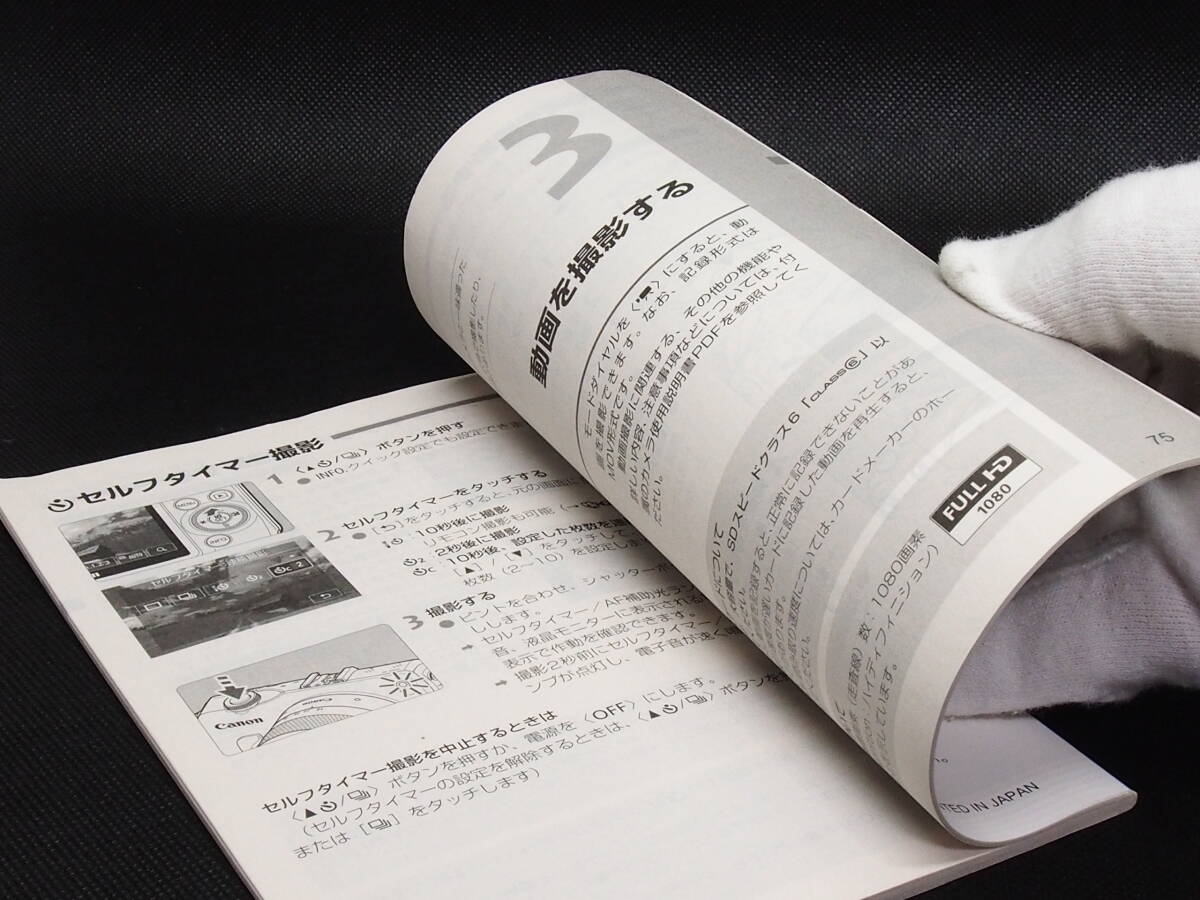 セルフタイマー撮影
1 〈▲/〉ボタンを押す
● INFO.クイック設定でも設定できま
2 セルフタイマーをタッチする
● [ ]をタッチすると、元の画面に
：10秒後に撮影
リモコン撮影も可能
2：2秒後に撮影
C：10秒後、設定した枚数を連
[▲] / [▼] をタッチして
枚数（2～10）を設定しま
3 撮影する
● ピントを合わせ、シャッターボ
しします。
セルフタイマー/AF補助光ラン
音、液晶モニターに表示される
表示で作動を確認できます。
➡ 撮影2秒前にセルフタイマー
ンプが点灯し、電子音が速く鳴
MENU
INFO
セルフタイマー
Canon
セルフタイマー撮影を中止するときは
〈▲/〉ボタンを押すか、電源を〈OFF〉にします。
（セルフタイマーの設定を解除するときは、〈▲/〉ボタンを
または [ ] をタッチします）
3
動画を撮影する
モードダイヤルを〈 〉にすると、動
画を撮影できます。なお、記録形式は
MOV形式です。
動画撮影に関連する、その他の機能や
詳しい内容、注意事項などについては、付
属のカメラ使用説明書PDFを参照してく
ださい。
ドについて
SDスピードクラス6「CLASS6」以
さい。
正常に記録できないことがあ
カードに記録した動画を再生すると、
ります。
については、カードメーカーのホー
ください。
FULL HD
1080
数：1080画素
（走査線）
ハイディフィニション）
しています。
75
TED IN JAPAN